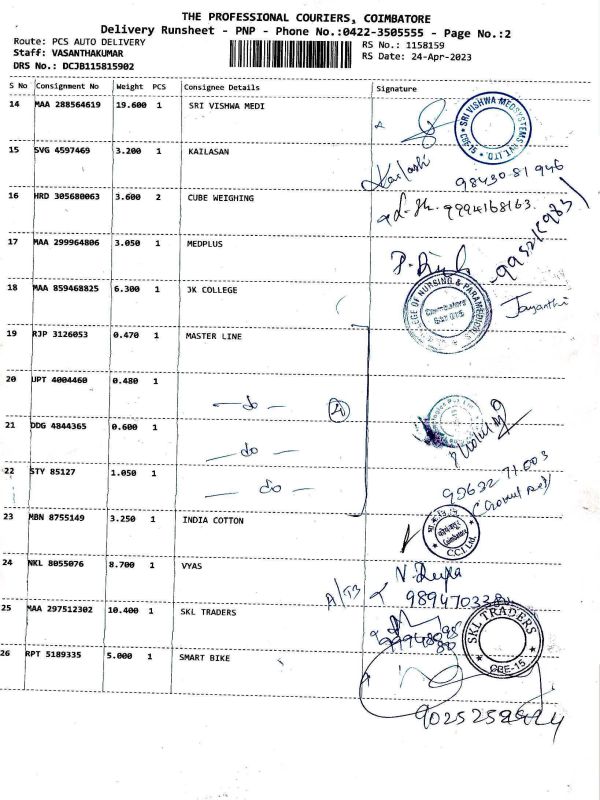 THE PROFESSIONAL COURIERS, COIMBATORE
Delivery Runsheet - PNP - Phone No.:0422-3505555 - Page No.:2
Route: PCS AUTO DELIVERY
RS No.: 1158159
Staff: VASANTHAKUMAR
RS Date: 24-Apr-2023
DRS No.: DCJB115815902
S No Consignment No Weight PCS Consignee Details Signature
14 MAA 288564619 19.600 1 SRI VISHWA MEDI
SRI VISHWA MEDSYSTEMS
15 SVG 4597469 3.200 1 KAILASAN
Kailash 98430 81 946
16 HRD 305680063 3.600 2 CUBE WEIGHING
9994168163
17 MAA 299964806 3.050 1 MEDPLUS
18 MAA 859468825 6.300 1 JK COLLEGE
COLLEGE OF NURSING & PARAMEDICALS
Coimbatore
Jayanthi
19 RJP 3126053 0.470 1 MASTER LINE
20 UPT 4004460 0.480 1
— do — 4
21 DDG 4844365 0.600 1
— do —
22 STY 85127 1.050 1
— do —
95632 71003
23 MBN 8755149 3.250 1 INDIA COTTON
C.C.I. Ltd.
24 NKL 8055076 8.700 1 VYAS
25 MAA 297512302 10.400 1 SKL TRADERS
SKL TRADERS
CBE-15
26 RPT 5189335 5.000 1 SMART BIKE